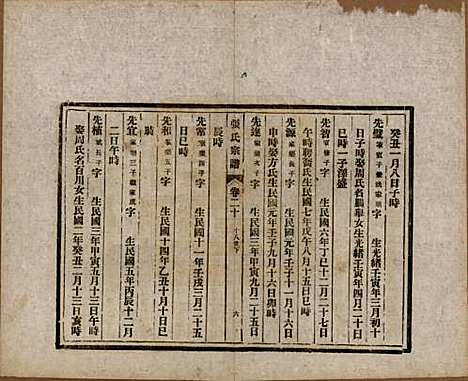 癸丑一月八日子時
先璧 字 生光緒壬寅年三月初十
日子時娶周氏名鵬舉女生光緒壬寅年四月二十日
巳時一子澤盛
先智 字 生民國六年丁巳十二月二十七日
午時 氏生民國七年戊午八月十五日巳時
先源 字 生民國元年壬子十一月十六日
申時娶方氏生民國元年壬子九月十六日卯時
先達 字 生民國三年甲寅九月二十五日
辰時
張氏宗譜 卷二十 六
先富 字 生民國十一年壬戌三月二十五
日巳時
先和 字 生民國十四年乙丑十月十日巳
時
先宜 字 生民國五年丙辰十二月
二日午時
先植 字 生民國三年甲寅五月十三日午時
娶周氏名百川女生民國二年癸丑二月十三日亥時